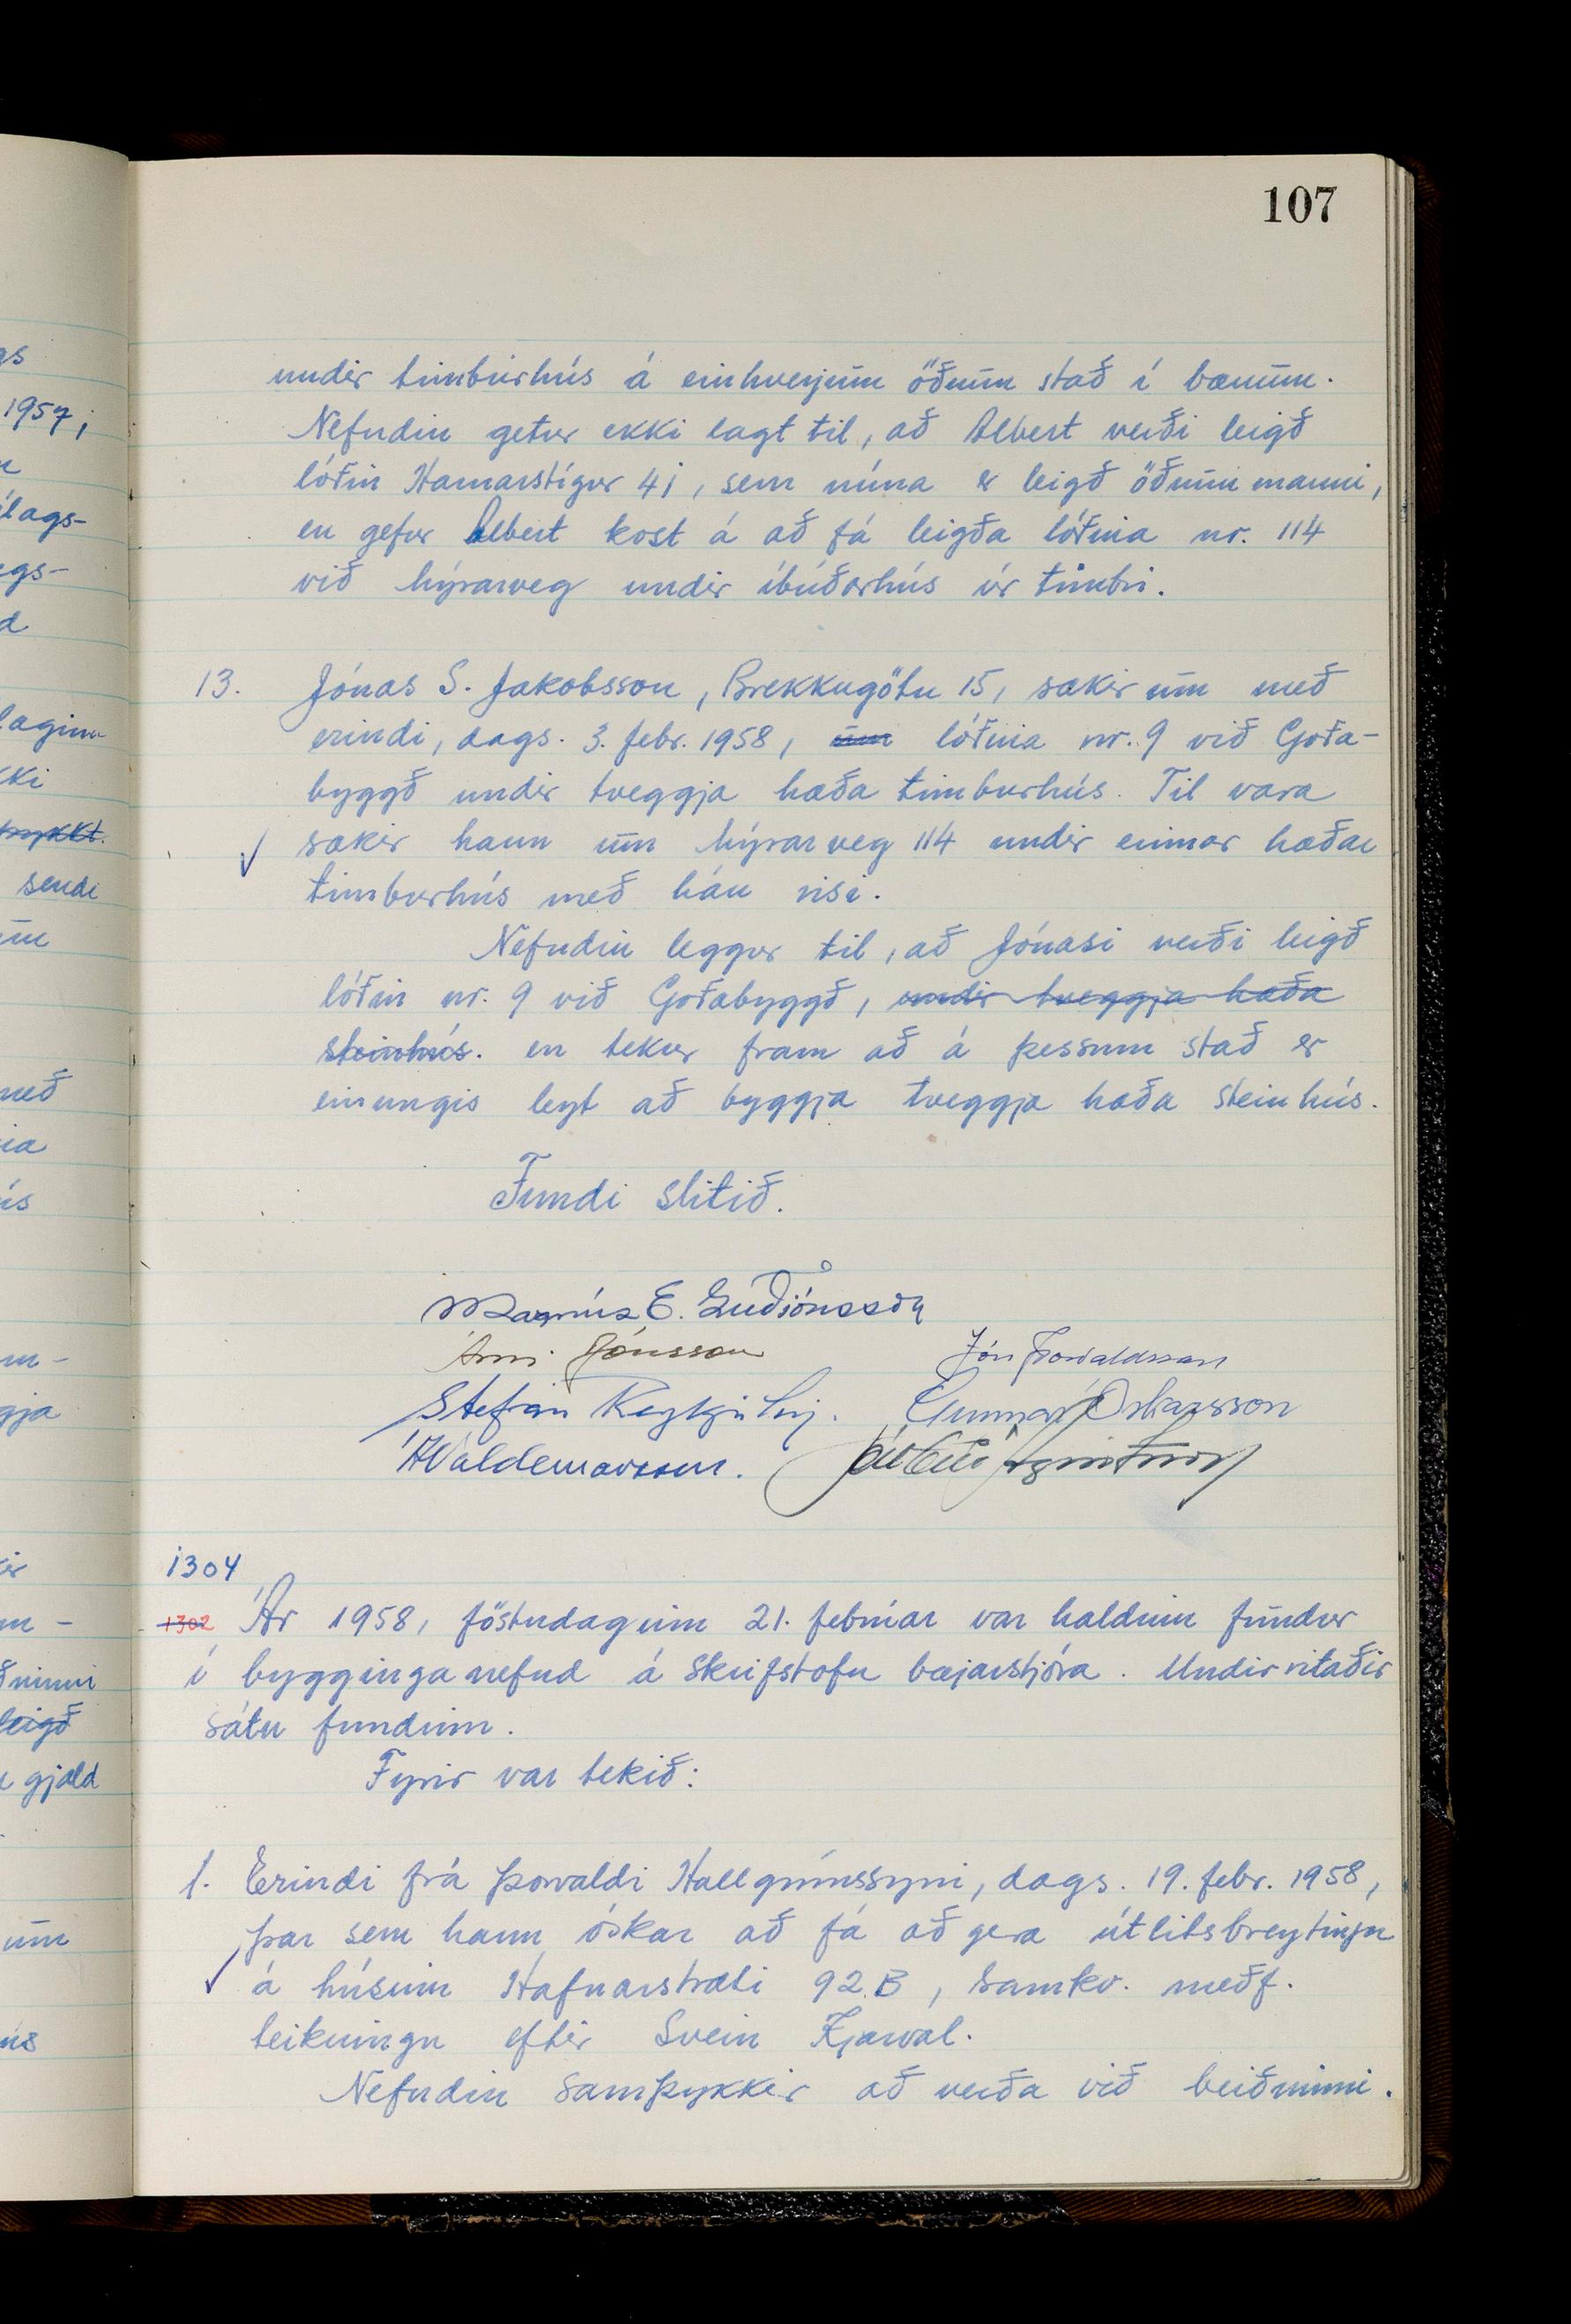 107
undir timburhús á einhverjum öðrum stað í bænum.
Nefndin getur ekki lagt til, að Albert verði leigð
lóðin Hamarstígur 41, sem núna er leigð öðrum manni,
en gefur Albert kost á að fá leigða lóðina nr. 114
við Mýrarveg undir íbúðarhús úr timbri.
13. Jónas S. Jakobsson, Brekkugötu 15, sækir um með
erindi, dags. 3. febr. 1958, um lóðina nr. 9 við Goða-
byggð undir tveggja hæða timburhús. Til vara
sækir hann um Mýrarveg 114 undir einnar hæðar
timburhús með háu risi.
Nefndin leggur til, að Jónasi verði leigð
lóðin nr. 9 við Goðabyggð, undir tveggja hæða
steinhús. en tekur fram að á þessum stað er
einungis leyft að byggja tveggja hæða steinhús.
Fundi slitið.
Magnús E. Guðjónsson
Árni Jónsson Jón Þorvaldsson
Stefán Reykjalín. Gunnar Óskarsson
Waldemarsson.
1304
1302 Ár 1958, föstudaginn 21. febrúar var haldinn fundur
í bygginganefnd á skrifstofu bæjarstjóra. Undirritaðir
sátu fundinn.
Fyrir var tekið:
1. Erindi frá Þorvaldi Hallgrímssyni, dags. 19. febr. 1958,
þar sem hann óskar að fá að gera útlitsbreytingu
á húsinu Hafnarstræti 92B, samkv. meðf.
teikningu eftir Svein Kjarval.
Nefndin samþykkir að verða við beiðninni.